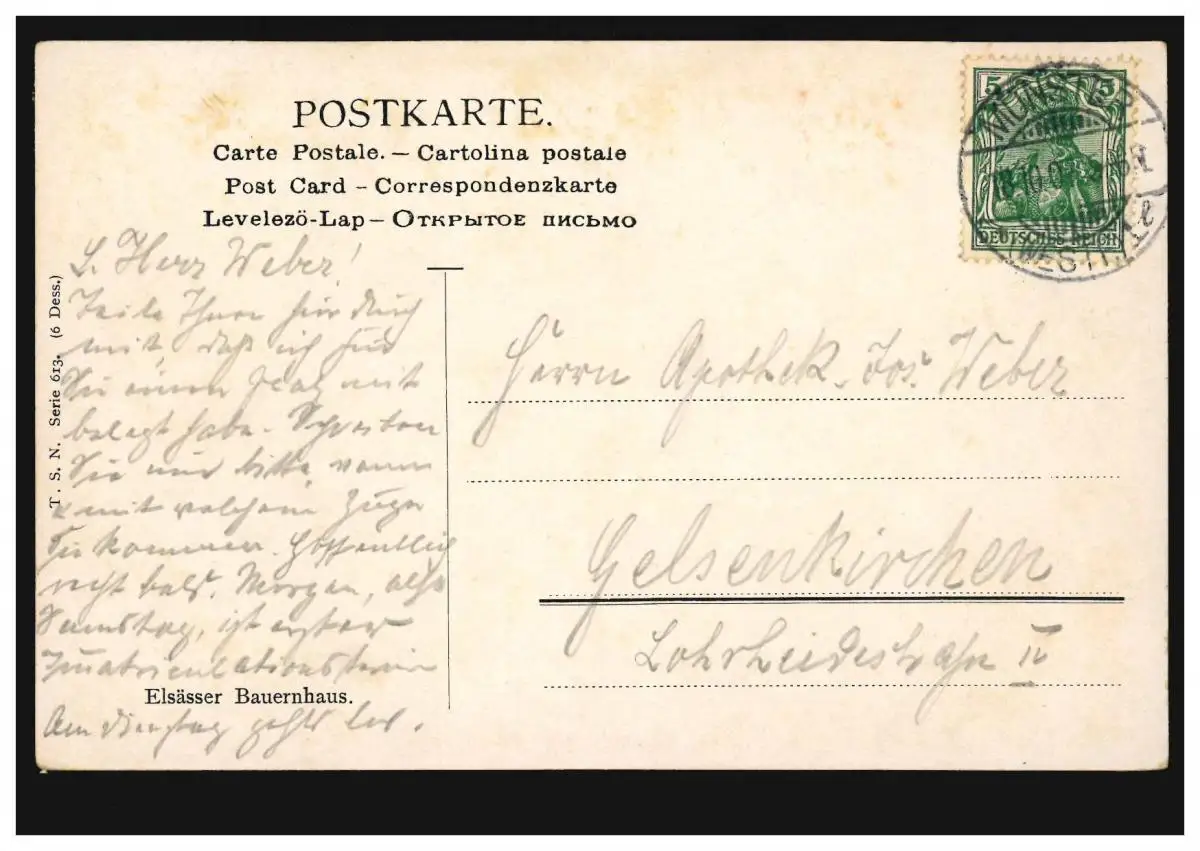 POSTKARTE.
Carte Postale. – Cartolina postale
Post Card – Correspondenzkarte
Levelezö-Lap – Открытое письмо
5 5
DEUTSCHES REICH
MÜNSTER
(WESTF.)
l
T. S. N. Serie 613. (6 Dess.)
L. Herr Weber!
Teile Ihnen hierdurch
mit, daß ich für
Sie einen Platz mit
belegt habe. Schreiben
Sie mir bitte, wann
u mit welchem Zuge
Sie kommen. Hoffentlich
recht bald. Morgen, also
Samstag, ist erster
Immatriculationstermin
Elsässer Bauernhaus.
Am Dienstag gehts los.
Herrn Apothek. Jos. Weber
Gelsenkirchen
Lohrheidestraße 11